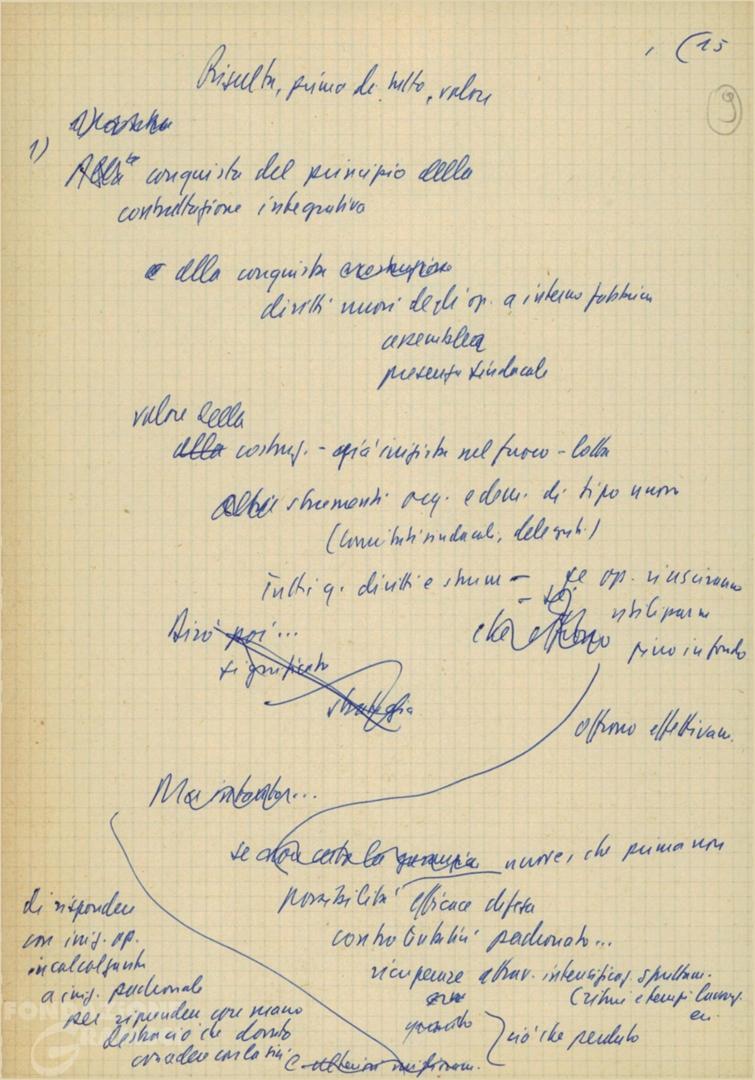 (15
9
Risulta, prima di tutto, valore
1)
conquista del principio della
contrattazione integrativa
e della conquista
diritti nuovi degli op. a interno fabbrica
assemblea
presenza sindacale
valore della
alla costruz. - già iniziata nel fuoco - lotta
strumenti org. e dem. di tipo nuovo
(comitati sindacali, delegati)
Tutti q. diritti e strum - se op. riusciranno
utilizzarli
che offrono fino in fondo
Dirò poi...
significato
strategia
offrono effettivam.
Ma intanto...
se nuove, che prima non
possibilità efficace difesa
contro tentativi padronato...
recuperare attrav. intensificaz. sfruttam.
(ritmi e tempi lavoraz.
quanto
ciò che perduto
di rispondere
con iniz. op.
incalzante
a iniz. padronale
per riprendere con mano
ciò che dovuto
concedere con la sini
FONDAZIONE